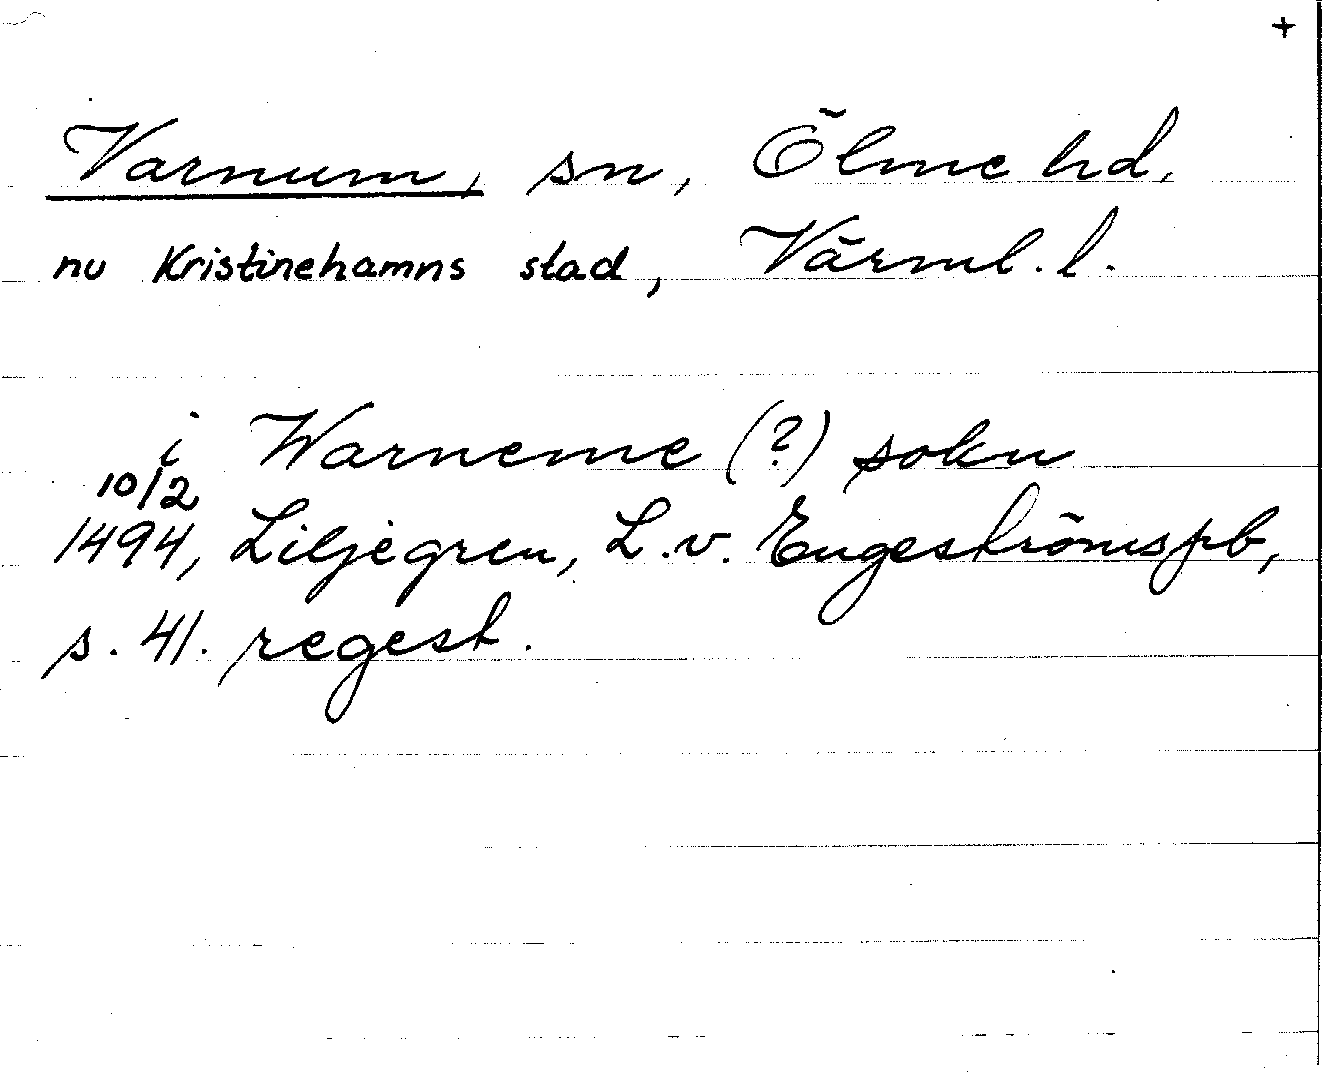 +
Varnum, sn, Ölme hd,
nu Kristinehamns stad, Värml. l.
i Warneme (?) sokn
10/2
1494, Liljegren, L. v. Engeströms pb,
s. 41. regest.